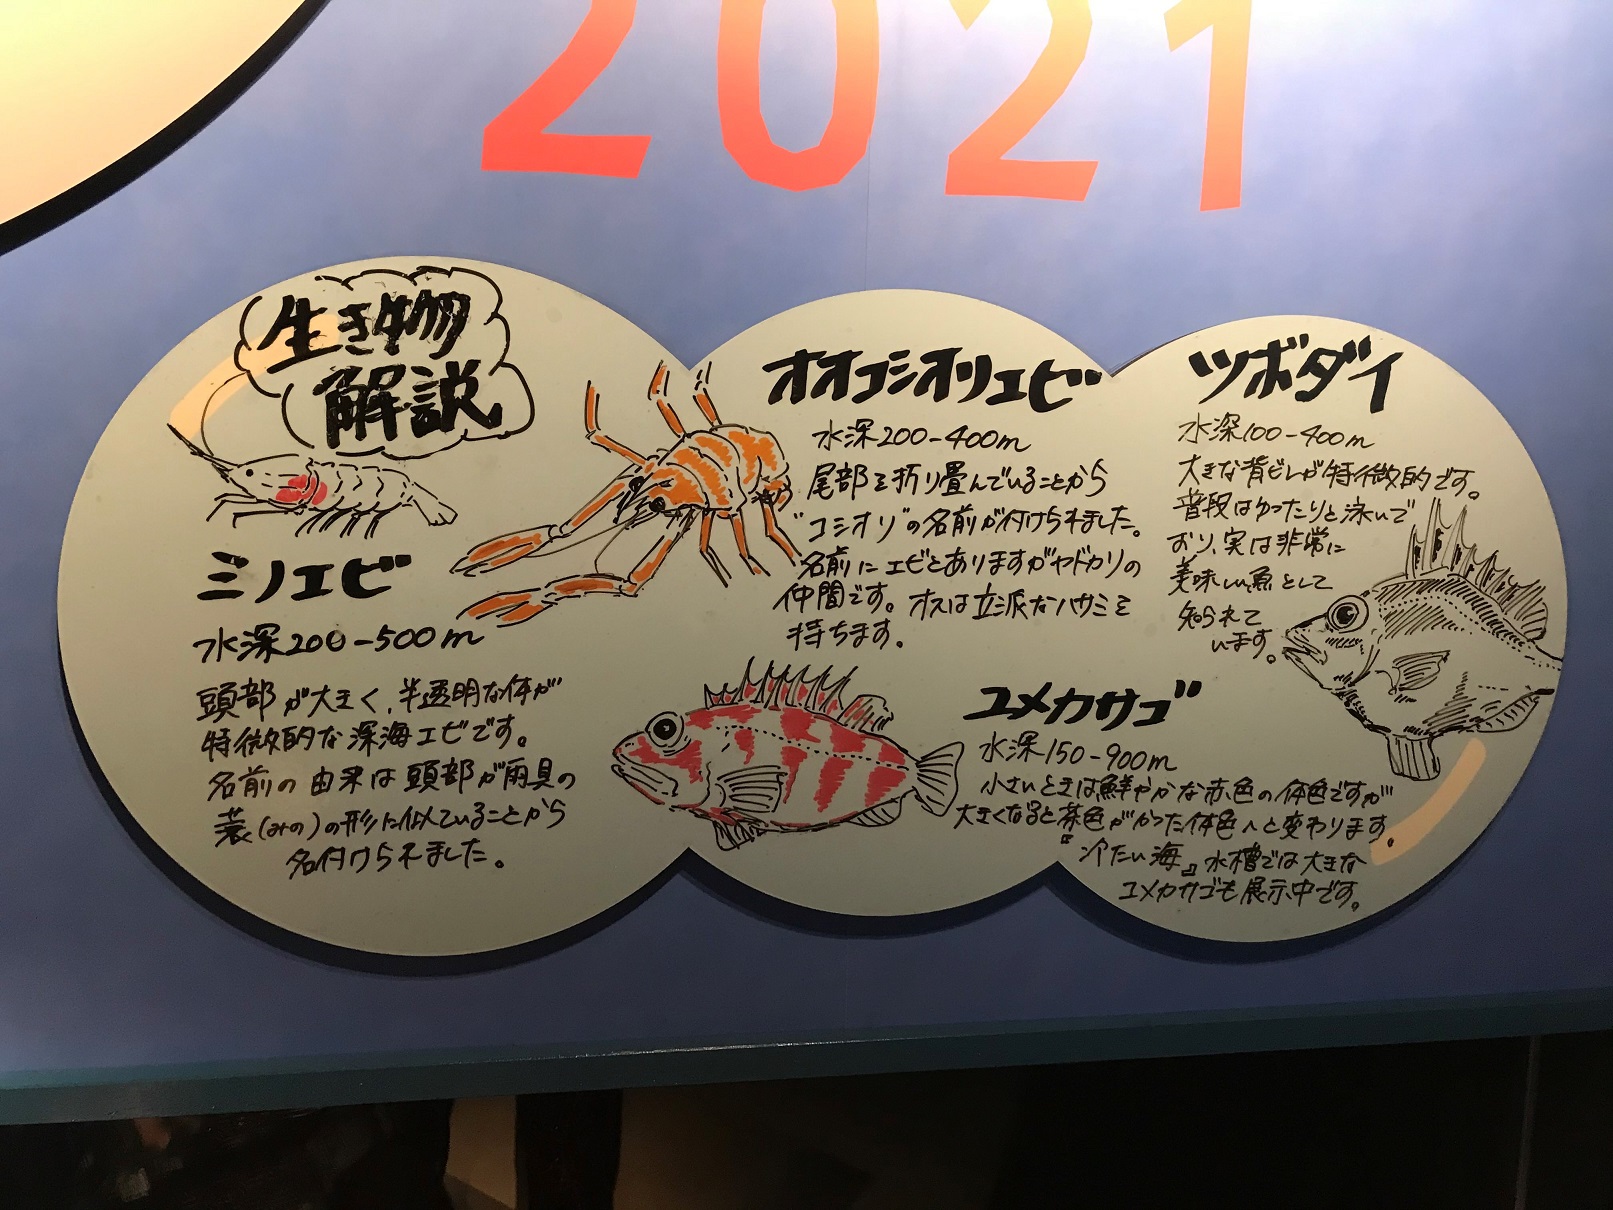 2021
生き物
解説
ミノエビ
水深200-500m
頭部が大きく、半透明な体が
特徴的な深海エビです。
名前の由来は頭部が雨具の
蓑(みの)の形に似ていることから
名付けられました。
オオコシオリエビ
水深200-400m
尾部を折り畳んでいることから
"コシオリ"の名前が付けられました。
名前にエビとありますがヤドカリの
仲間です。オスは立派なハサミを
持ちます。
ツボダイ
水深100-400m
大きな背ビレが特徴的です。
普段はゆったりと泳いで
おり、実は非常に
美味しい魚として
知られて
います。
ユメカサゴ
水深150-900m
小さいときは鮮やかな赤色の体色ですが
大きくなると茶色がかった体色へと変わります。
『冷たい海』水槽では大きな
ユメカサゴも展示中です。